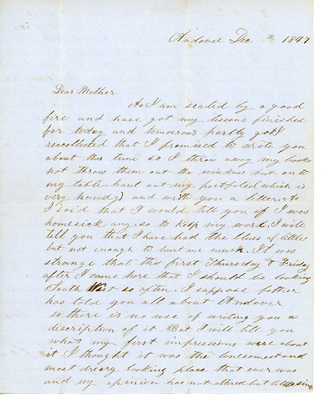 Andover Dec 1847
Dear Mother
As I am seated by a good
fire and have got my lessons finished
for today and tomorrows partly got I
recollected that I promised to write you
about this time so I throw away my books
not throw them out the window but on to
my table haul out my portfolio (which is
very handy) and write you a letter. As
I said that I would tell you if I was
homesick any, so to keep my word I will
tell you that I have had the blues a little
but not enough to hurt me much. It was
strange that the first Thursday & Friday
after I came here that I should be looking
South West so often. I suppose father
has told you all about Andover
so there is no use of writing you a
description of it But I will tell you
what my first impressions were about
it I thought it was the lonesomest and
most dreary looking place that ever was
and my opinion has not altered but